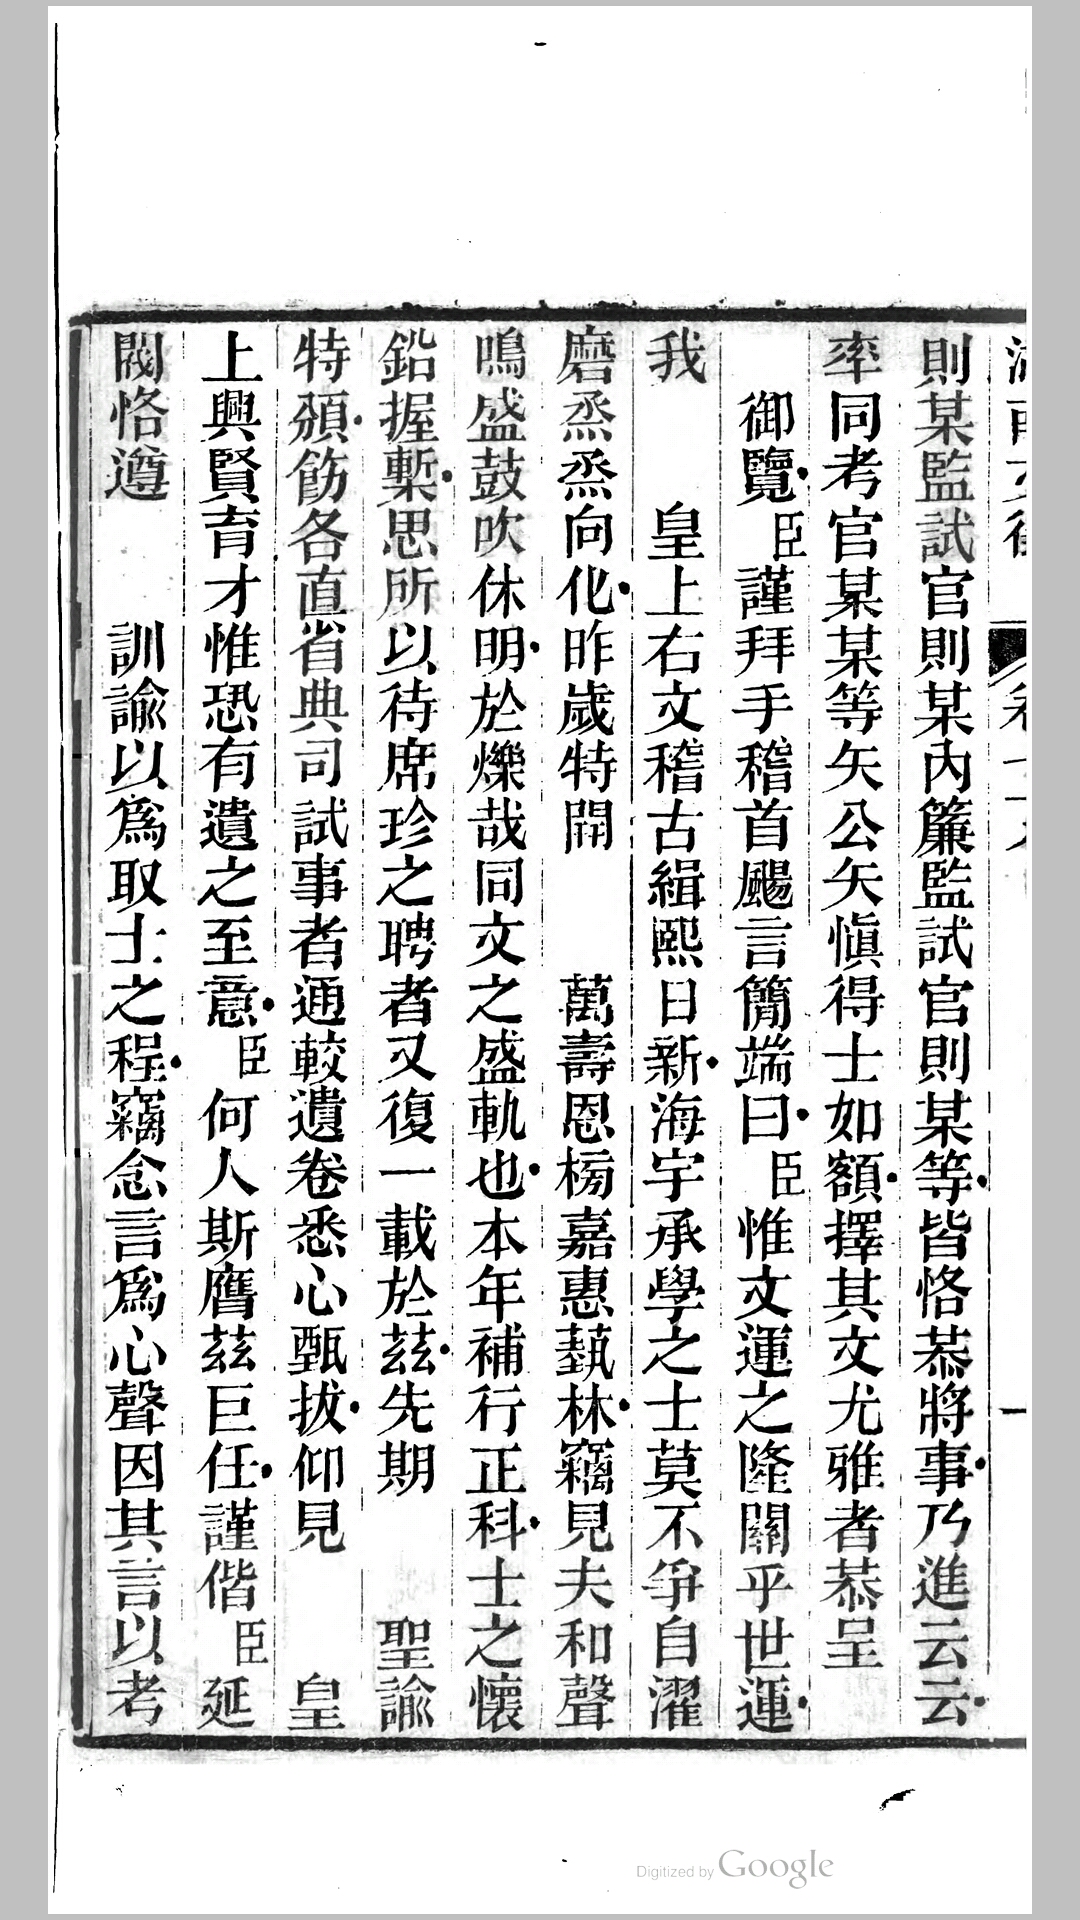 則某監試官則某內簾監試官則某等皆恪恭將事乃進云云
率同考官某某等矢公矢愼得士如額擇其文尤雅者恭呈
御覽臣謹拜手稽首颺言簡端曰臣惟文運之隆關乎世運
我　　皇上右文稽古緝熙日新海宇承學之士莫不爭自濯
磨烝烝向化昨歲特開　　萬壽恩榜嘉惠藝林竊見夫和聲
鳴盛鼓吹休明於爍哉同文之盛軌也本年補行正科士之懷
鉛握槧思所以待席珍之聘者又復一載於茲先期　　聖諭
特頒飭各直省典司試事者通較遺卷悉心甄拔仰見　　皇
上興賢育才惟恐有遺之至意臣何人斯膺茲巨任謹偕臣延
閣恪遵　　訓諭以爲取士之程竊念言爲心聲因其言以考
Digitized by Google